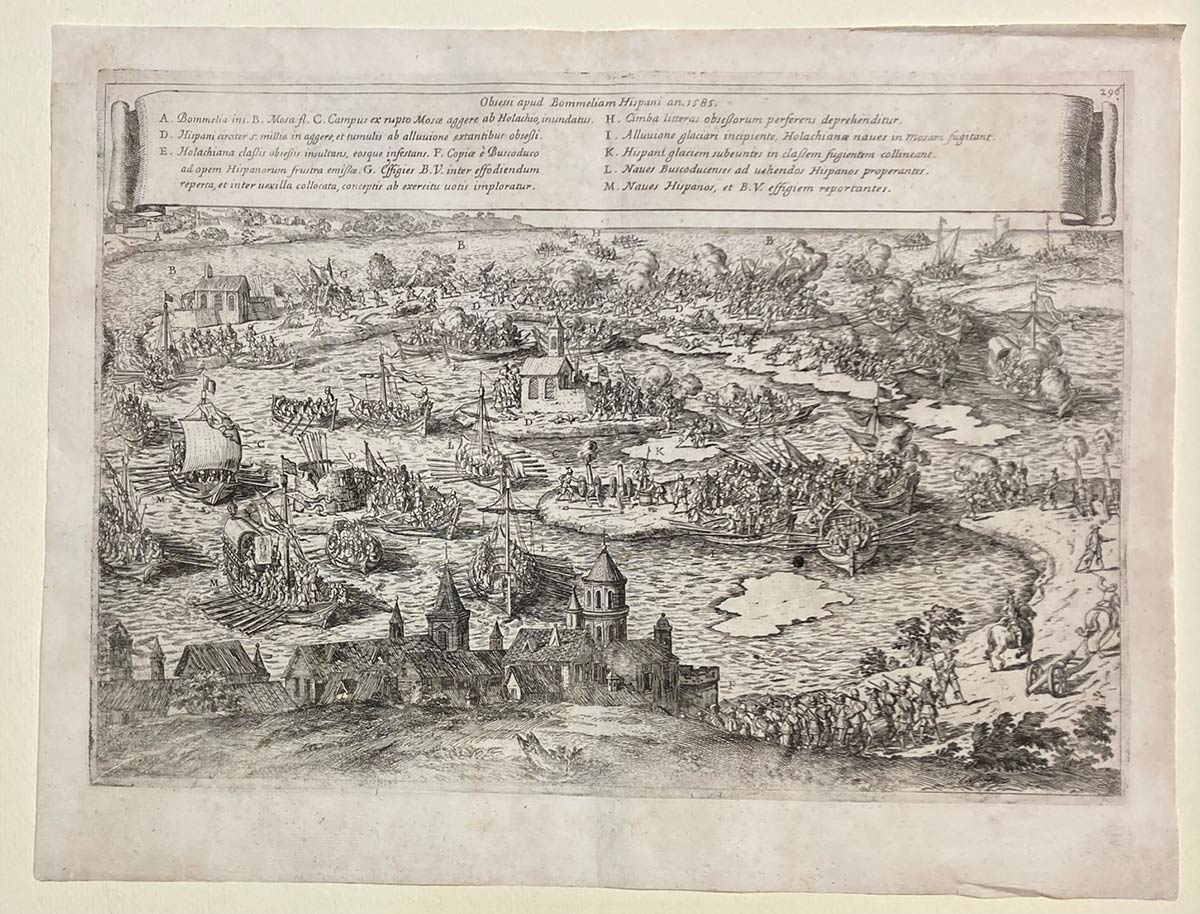 296
Obsessi apud Bommeliam Hispani an. 1585.
A. Bommelia ini. B. Mosa fl. C. Campus ex rupto Mosæ aggere ab Holachio, inundatus.
D. Hispani circiter 5. millia in aggere, et tumulis ab alluvione extantibus obsessi.
E. Holachiana classis obsessis insultans, eosque infestans. F. Copiæ è Buscoduco
ad opem Hispanorum frustra emissæ. G. Effigies B.V. inter effodiendum
reperta, et inter vexilla collocata, conceptis ab exercitu votis imploratur.
H. Cimba litteras obsessorum perferens deprehenditur.
I. Alluvione glaciari incipiente, Holachianæ naves in mosam fugitant.
K. Hispani glaciem subeuntes in classem fugientem collineant.
L. Naves Buscoducenses ad vehendos Hispanos properantes.
M. Naves Hispanos, et B.V. effigiem reportantes.
A
B
B
H
B
G
D
D
K
E
D
L
C
K
D
M
I
M
C